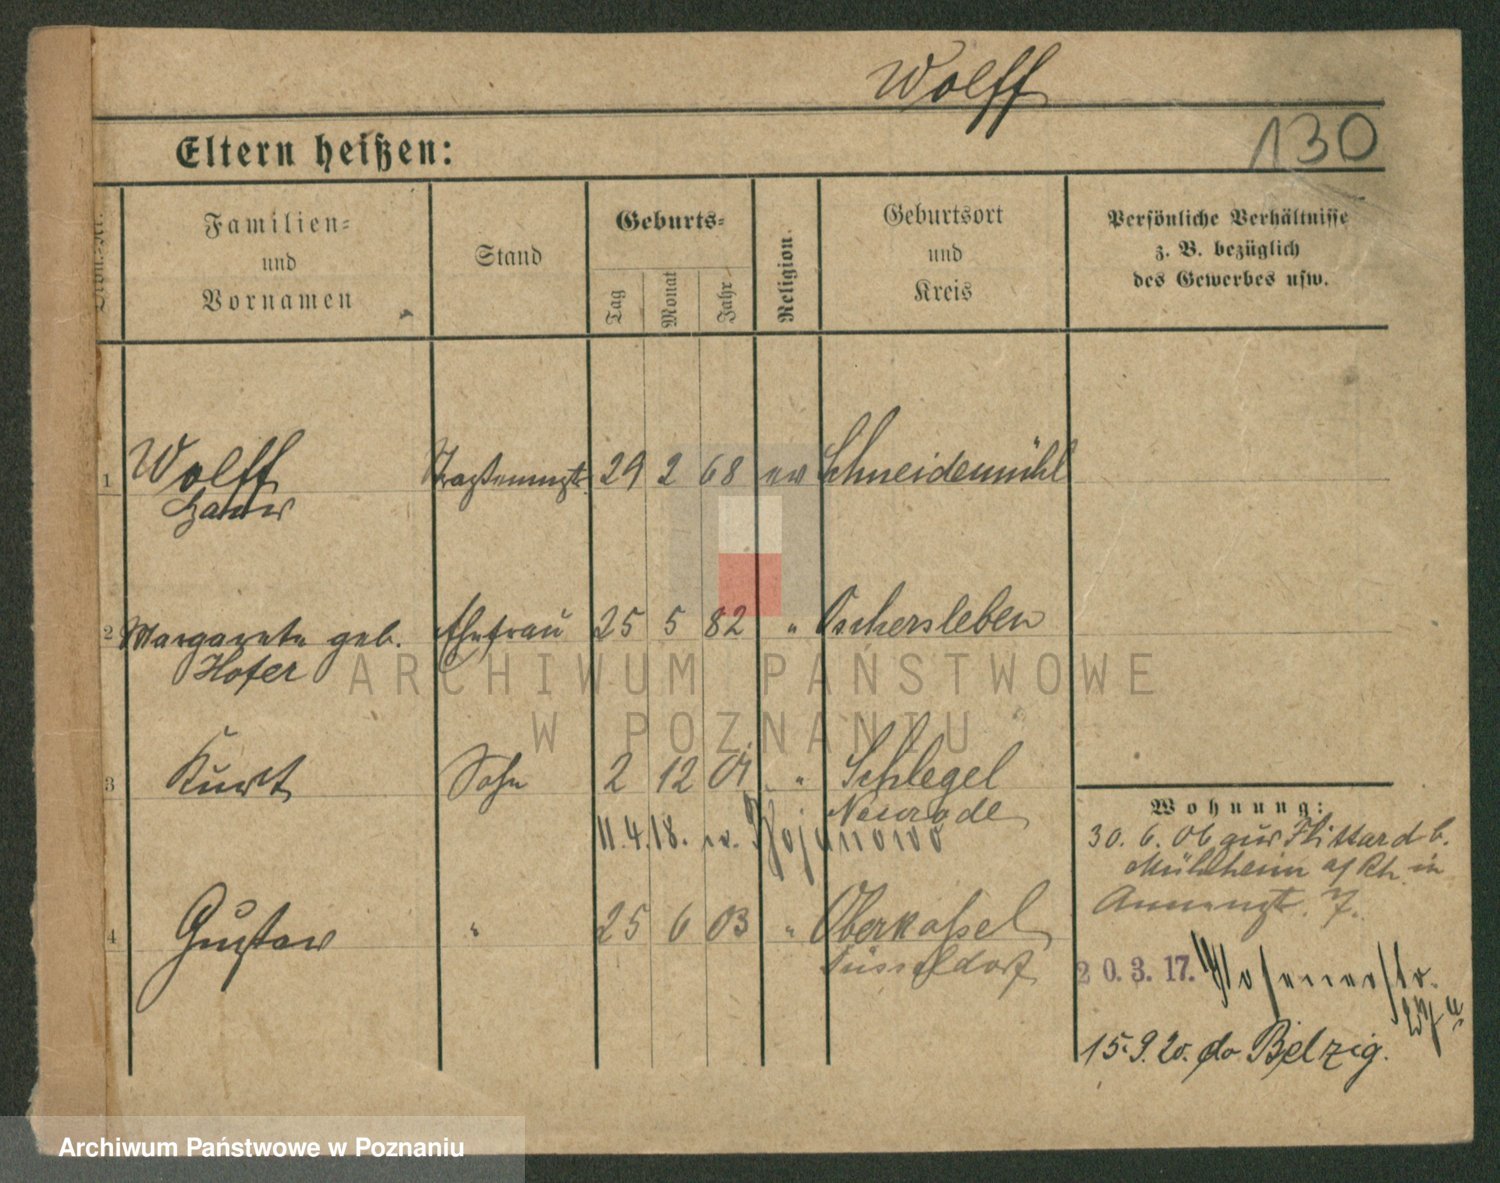 Wolff
130
Eltern heißen:
Familien-
und
Vornamen
Stand
Geburts-
Tag
Monat
Jahr
Religion.
Geburtsort
und
Kreis
Persönliche Verhältnisse
z. B. bezüglich
des Gewerbes usw.
1 Wolff 29 2 68 ev Schneidemühl
2 Margarete geb. Ehefrau 25 5 82 " Oschersleben
Hofer
3 Kurt Sohn 2 12 01 " Schlegel
Neurode
11.4.18. n. Bojanowo
4 Gustav " 25 6 03 " Oberkassel
Düsseldorf
Wohnung:
30. 6. 06 aus Flittard b.
Mülheim a/Rh. in
20.3.17. Posenerstr.
15.9.20. do Belzig.
ARCHIWUM PAŃSTWOWE
W POZNANIU
Archiwum Państwowe w Poznaniu